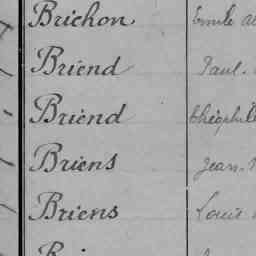 Brichon Emile
Briend Paul.
Briend théophile
Briens Jean.
Briens Louis